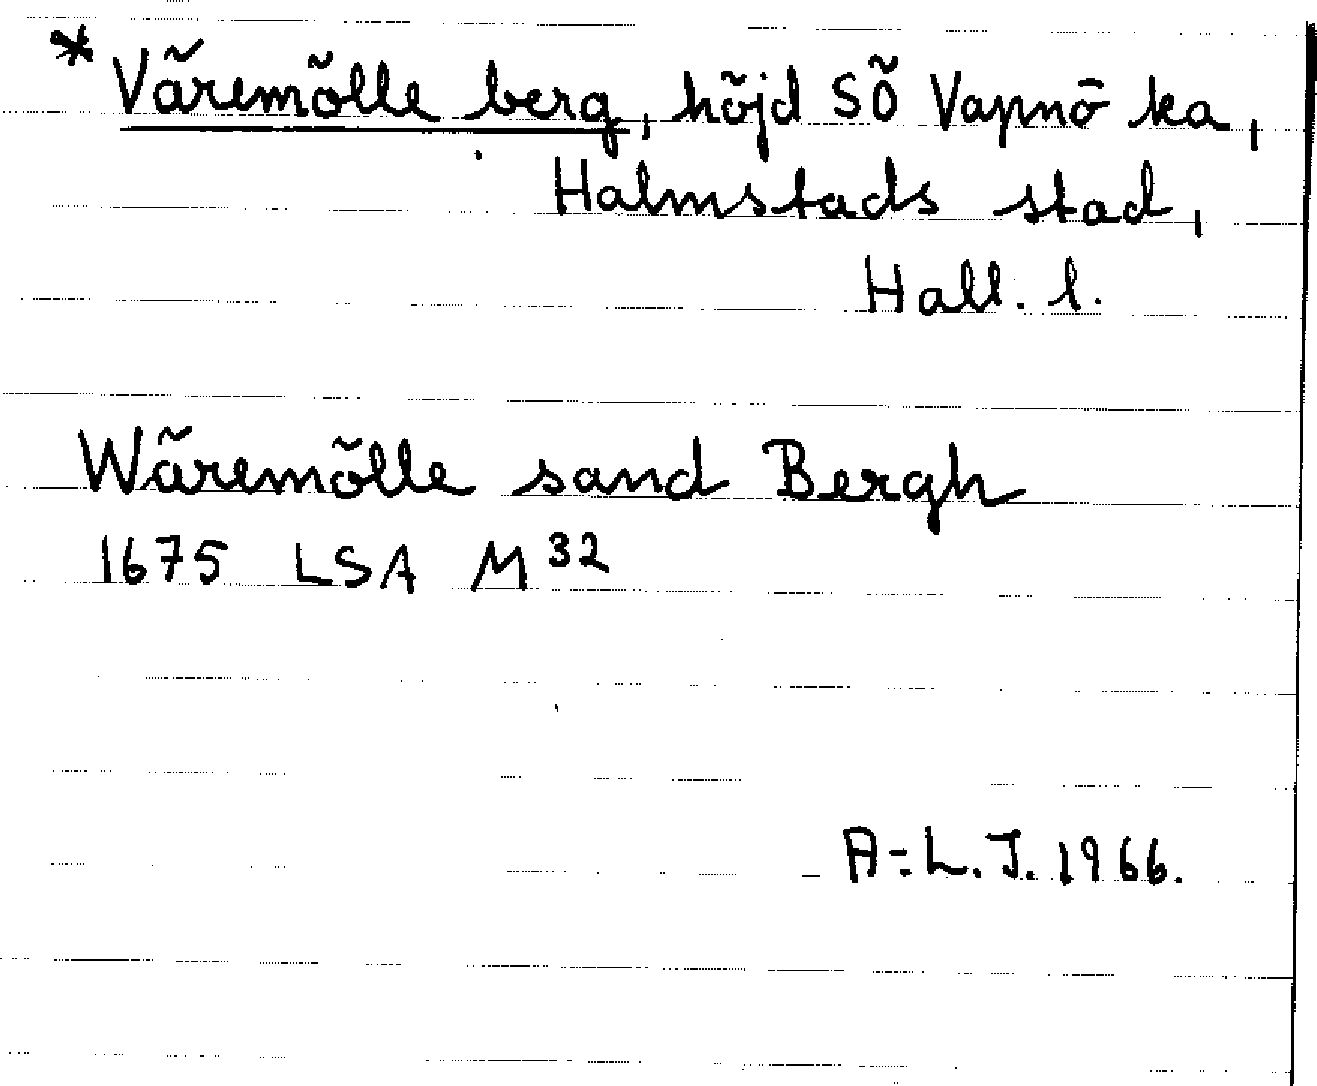 * Väremölle berg, höjd SÖ Vapnö ka,
Halmstads stad,
Hall. l.
Wäremölle sand Bergh
1675 LSA M 32
A-L. J. 1966.